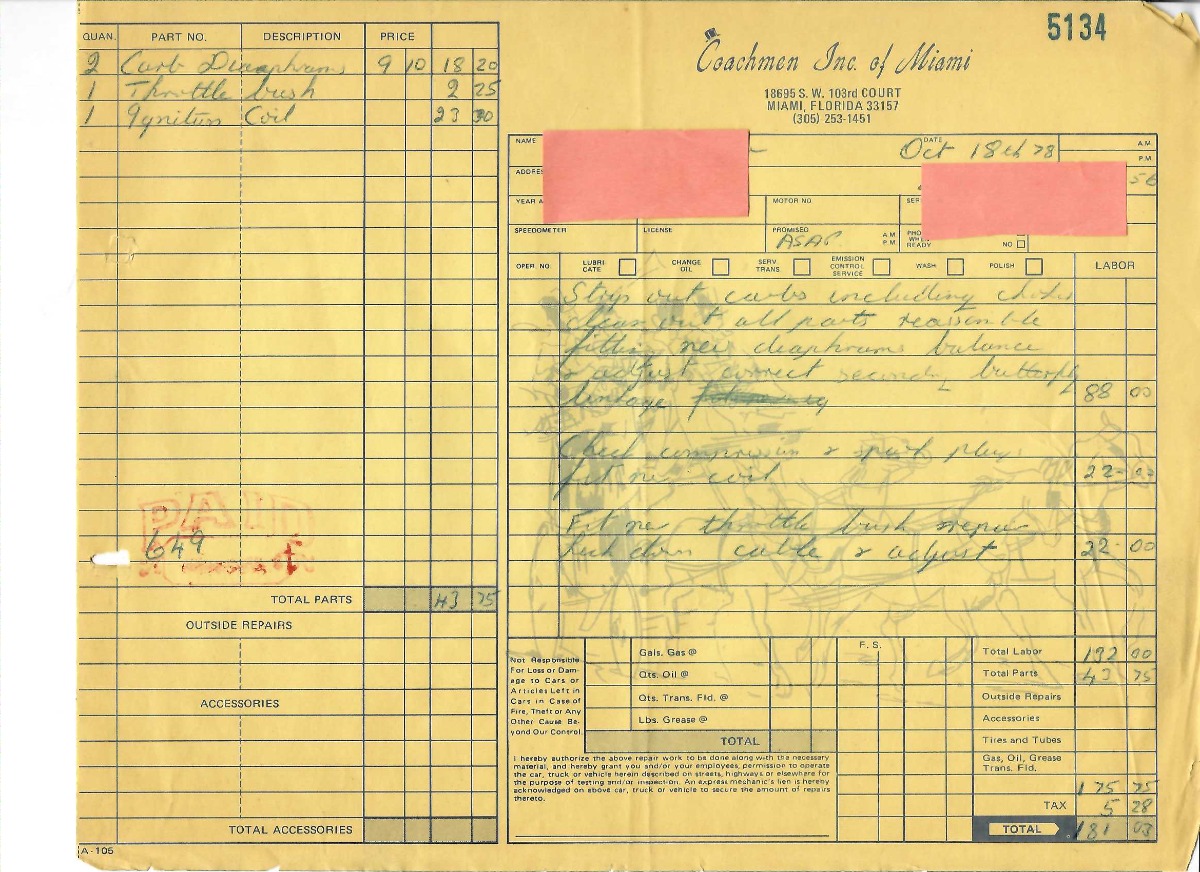 QUAN. PART NO. DESCRIPTION PRICE
2 Carb Diaaphrams 9 10 18 20
1 Throttle bush 2 25
1 Ignition Coil 23 30
PAID
649
TOTAL PARTS 43 75
OUTSIDE REPAIRS
ACCESSORIES
TOTAL ACCESSORIES
A-105
5134
Coachmen Inc. of Miami
18695 S. W. 103rd COURT
MIAMI, FLORIDA 33157
(305) 253-1451
NAME DATE Oct 18th 78 A.M.
P.M.
ADDRES 56
YEAR A MOTOR NO. SER
SPEEDOMETER LICENSE PROMISED ASAP. A M P M PHO WHE READY NO
OPER. NO. LUBRI CATE CHANGE OIL SERV. TRANS EMISSION CONTROL SERVICE WASH POLISH LABOR
Strip out carbs including chokes
clean out all parts reassemble
fitting new diaphrams balance
& adjust correct secondy butterfly
linkage 88 00
Check compression & spark plugs
fit new coil 22- 00
Fit new throttle bush repair
kick down cable & adjust 22- 00
Not Responsible
For Loss or Dam-
age to Cars or
Articles Left in
Cars in Case of
Fire, Theft or Any
Other Cause Be-
yond Our Control.
Gals. Gas @
Qts. Oil @
Qts. Trans. Fld. @
Lbs. Grease @
TOTAL
F. S.
I hereby authorize the above repair work to be done along with the necessary
material, and hereby grant you and/or your employees, permission to operate
the car, truck or vehicle herein described on streets, highways or elsewhere for
the purpose of testing and/or inspection. An express mechanic's lien is hereby
acknowledged on above car, truck or vehicle to secure the amount of repairs
thereto.
Total Labor 132 00
Total Parts 43 75
Outside Repairs
Accessories
Tires and Tubes
Gas, Oil, Grease
Trans. Fld.
175 75
TAX 5 28
TOTAL 181 03